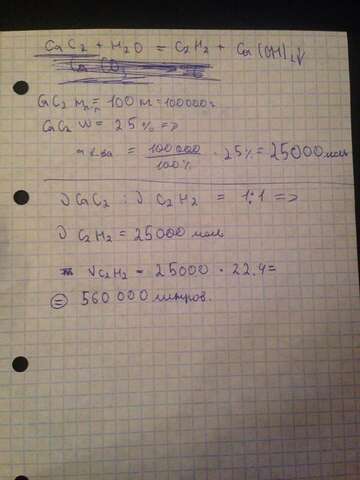 CaC2 + H2O = C2H2 + Ca(OH)2↓
CaC2 m = 100 = 100000г
CaC2 W = 25% =>
= 100000 / 100% · 25% = 25000 моль
ν CaC2 : ν C2H2 = 1:1 =>
ν C2H2 = 25000 моль
V C2H2 = 25000 · 22.4 =
= 560 000 литров.